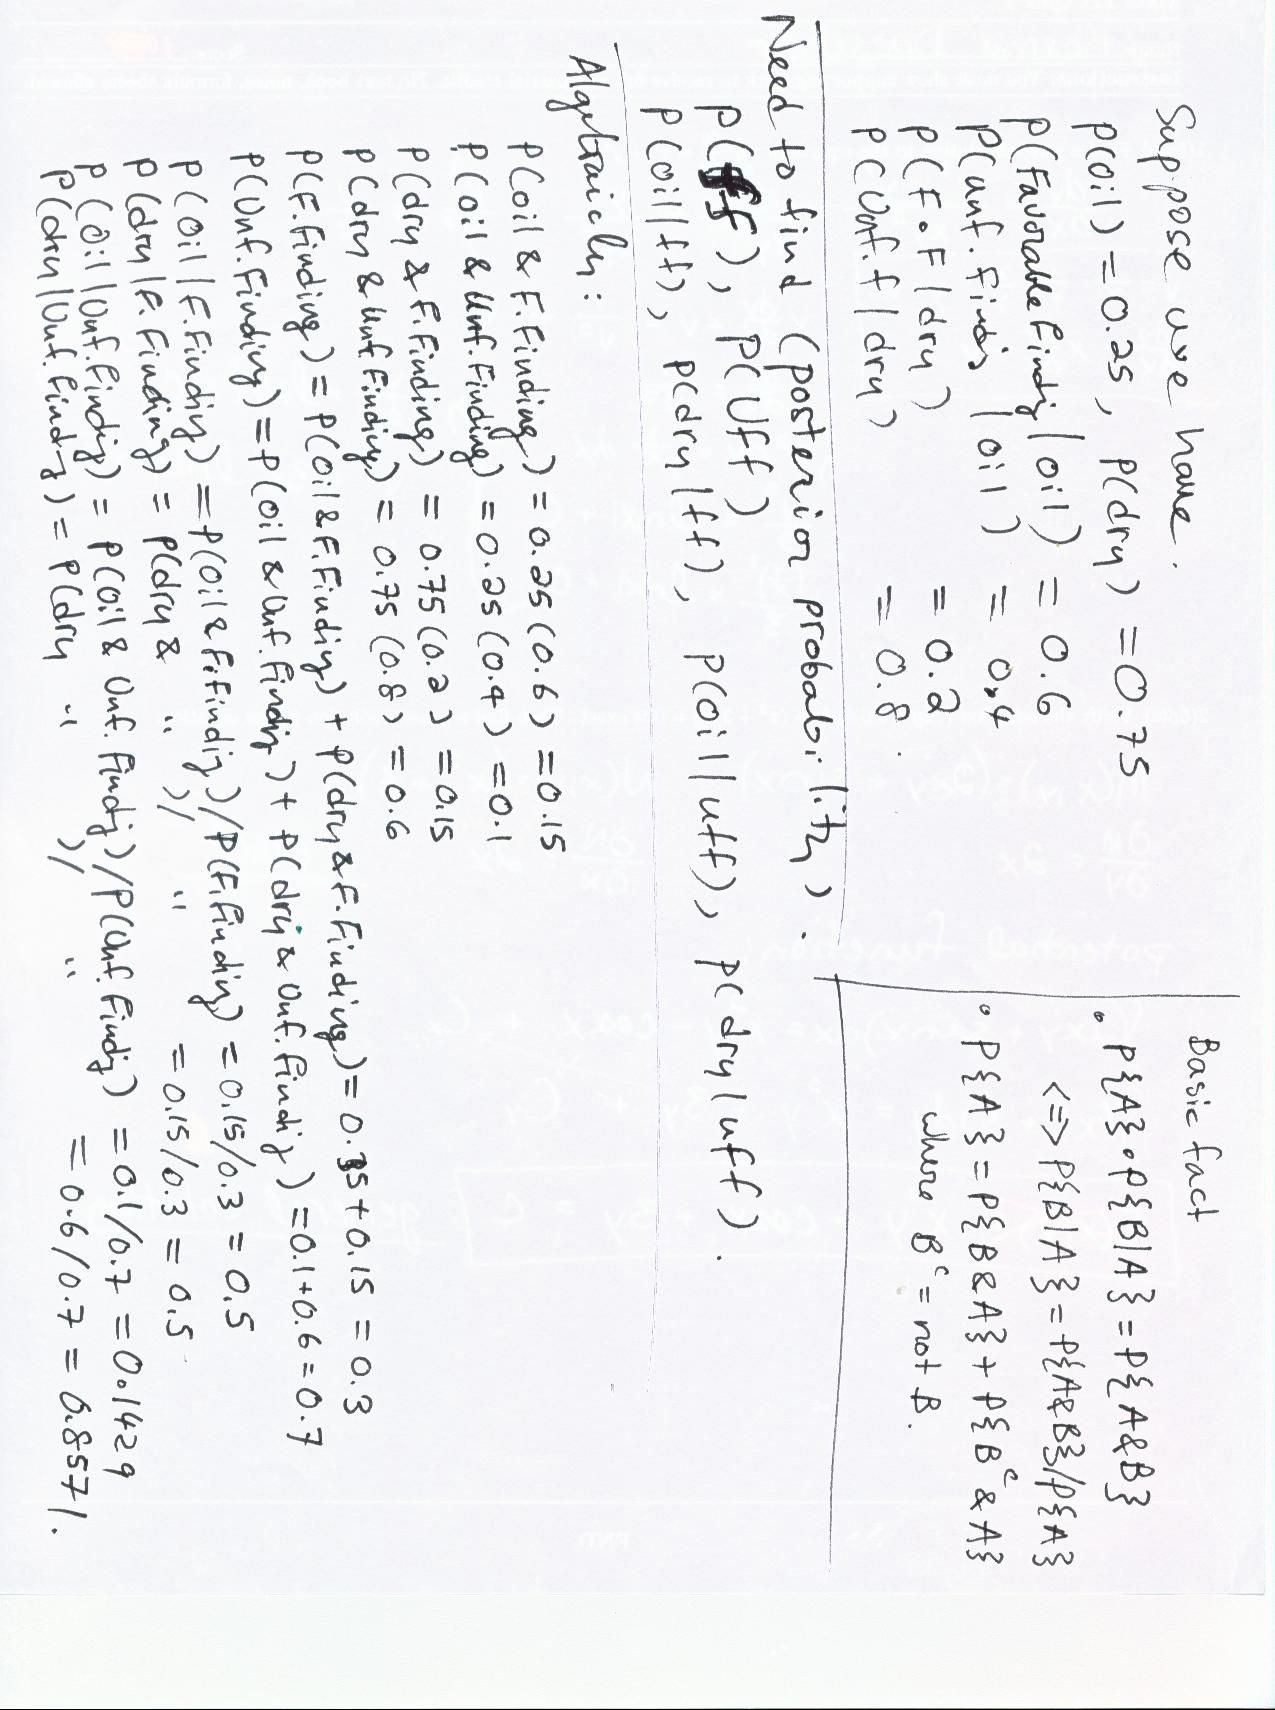 Suppose we have.
P(oil) = 0.25, P(dry) = 0.75
P(Favorable Findig | oil) = 0.6
P(unf. Findis | oil) = 0.4
P(F.F | dry) = 0.2
P(Unf.f | dry) = 0.8.
Basic fact
• P{A}•P{B|A} = P{A&B}
<=> P{B|A} = P{A&B}/P{A}
• P{A} = P{B&A} + P{Bᶜ&A}
where Bᶜ = not B.
Need to find (posterior probability).
P(ff), P(Uff)
P(oil|ff), P(dry|ff), P(oil|uff), P(dry|uff).
Algebraicly:
P(oil & F.Finding) = 0.25(0.6) = 0.15
P(oil & Unf.Finding) = 0.25(0.4) = 0.1
P(dry & F.Finding) = 0.75(0.2) = 0.15
P(dry & Unf Finding) = 0.75(0.8) = 0.6
P(F.Finding) = P(oil & F.Finding) + P(dry & F.Finding) = 0.15 + 0.15 = 0.3
P(Unf.Finding) = P(oil & Unf.Finding) + P(dry & Unf.Findig) = 0.1+0.6 = 0.7
P(oil | F.Finding) = P(oil & F.Findig)/P(F.Finding) = 0.15/0.3 = 0.5
P(dry | F.Finding) = P(dry & " )/ " = 0.15/0.3 = 0.5
P(oil | Unf.Findig) = P(oil & Unf. Findig)/P(Unf.Findig) = 0.1/0.7 = 0.1429
P(dry | Unf.Findig) = P(dry " )/ " = 0.6/0.7 = 0.8571.